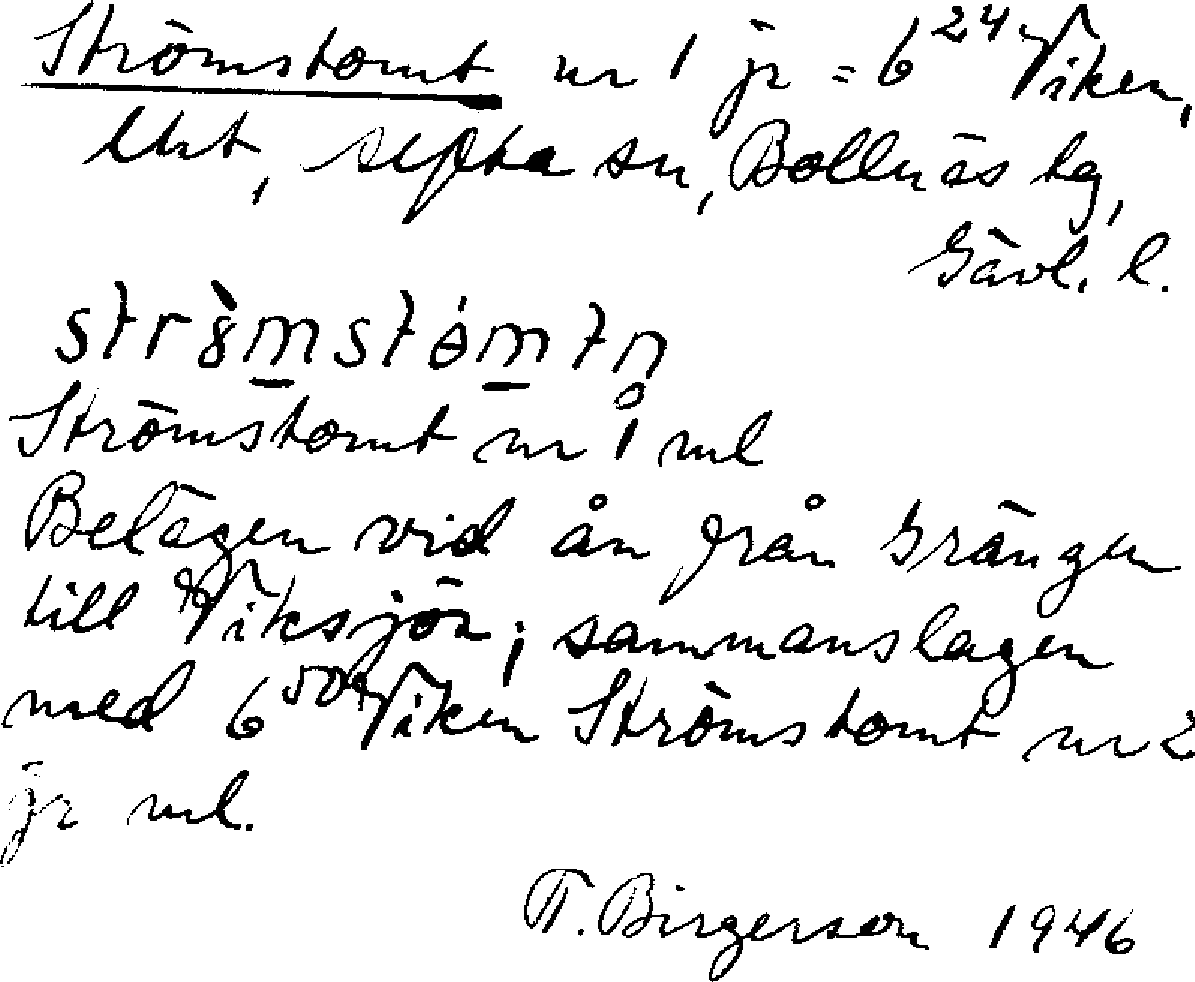 Strömstomt nr 1 jr = 6²⁴ Viken,
lht, Alfta sn, Bollnäs tg,
Gävl. l.
Strömstomt nr 1 ml
Belägen vid ån från Grängen
till Viksjön; sammanslagen
med 6⁵⁰ Viken Strömstomt nr 2
jr ml.
T. Birgerson 1946